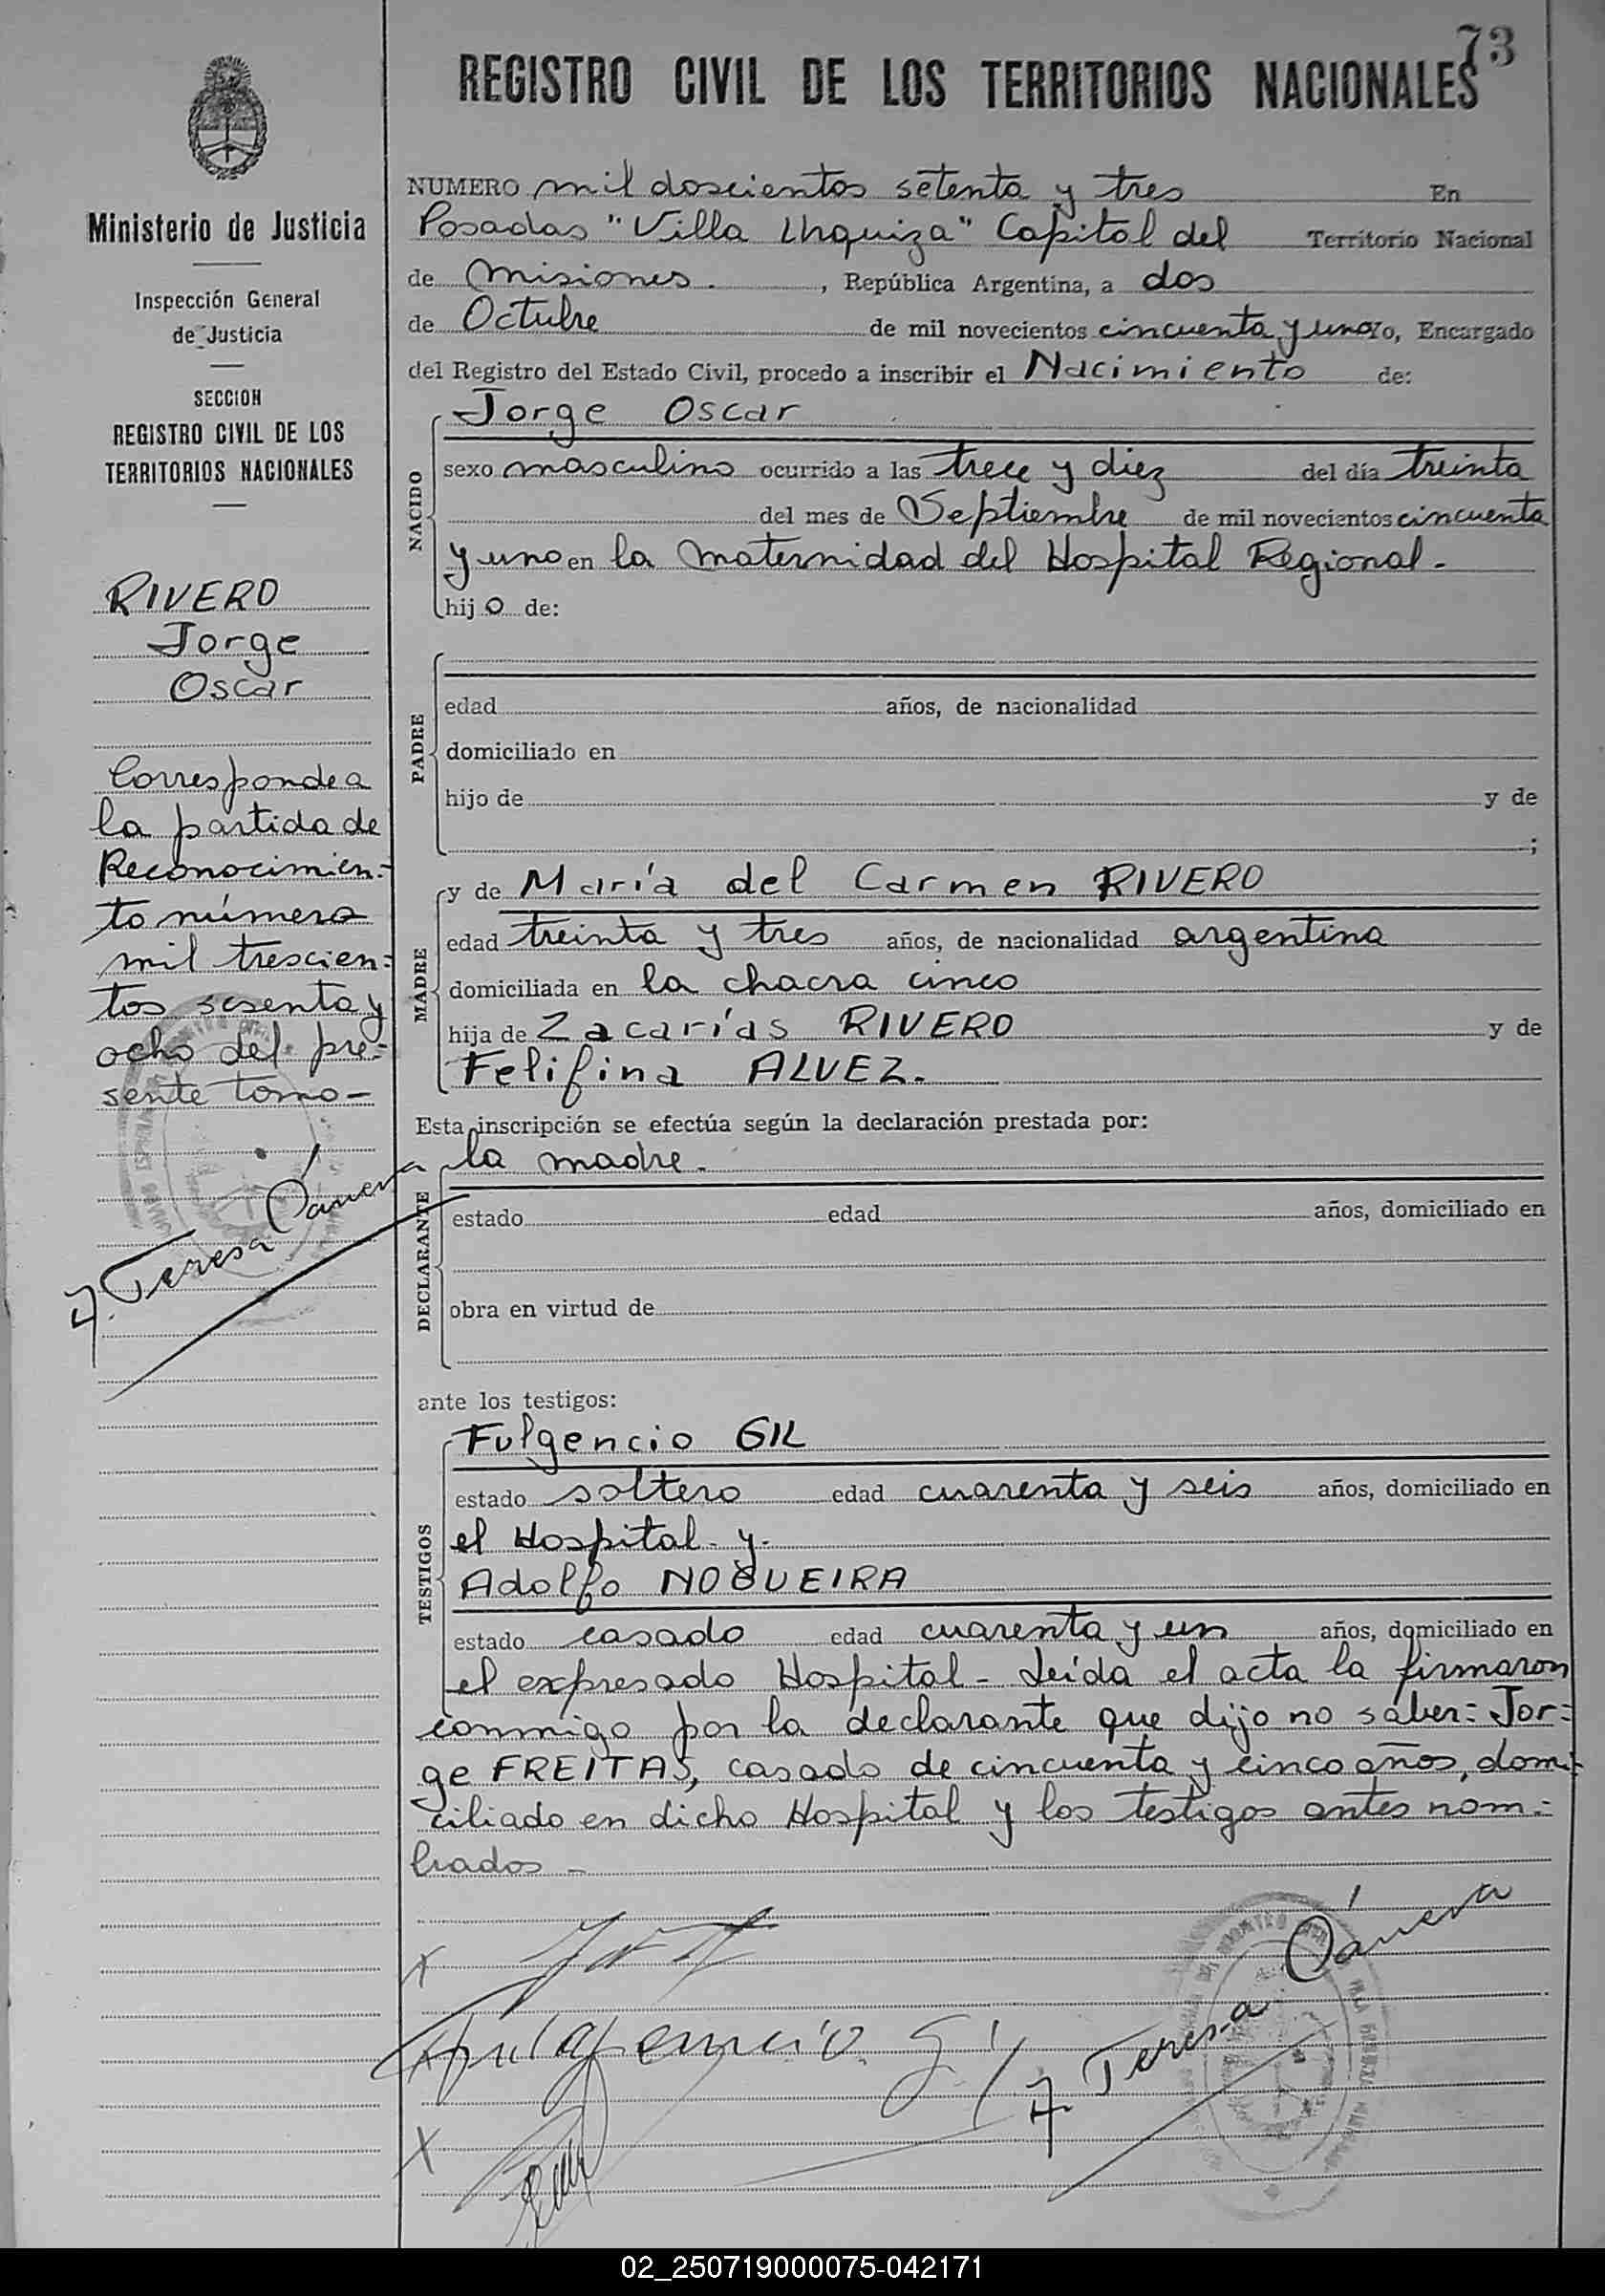 73
REGISTRO CIVIL DE LOS TERRITORIOS NACIONALES
Ministerio de Justicia
Inspección General
de Justicia
SECCION
REGISTRO CIVIL DE LOS
TERRITORIOS NACIONALES
RIVERO
Jorge
Oscar
Corresponde a
la partida de
Reconocimien=
to número
mil trescien=
tos sesenta y
ocho del pre=
sente tomo-
NUMERO mil doscientos setenta y tres En
Posadas "Villa Urquiza" Capital del Territorio Nacional
de Misiones. , República Argentina, a dos
de Octubre de mil novecientos cincuenta y uno Yo, Encargado
del Registro del Estado Civil, procedo a inscribir el Nacimiento de:
Jorge Oscar
NACIDO
sexo masculino ocurrido a las trece y diez del día treinta
del mes de Septiembre de mil novecientos cincuenta
y uno en la Maternidad del Hospital Regional.
hijo de:
PADRE
edad años, de nacionalidad
domiciliado en
hijo de y de
;
MADRE
y de María del Carmen RIVERO
edad treinta y tres años, de nacionalidad argentina
domiciliada en la chacra cinco
hija de Zacarías RIVERO y de
Felifina ALVEZ.
Esta inscripción se efectúa según la declaración prestada por:
la madre.
DECLARANTE
estado edad años, domiciliado en
obra en virtud de
ante los testigos:
TESTIGOS
Fulgencio GIL
estado soltero edad cuarenta y seis años, domiciliado en
el Hospital y.
Adolfo NOGUEIRA
estado casado edad cuarenta y un años, domiciliado en
el expresado Hospital - Leída el acta la firmaron
conmigo por la declarante que dijo no saber= Jor=
ge FREITAS, casado de cincuenta y cinco años, domi=
ciliado en dicho Hospital y los testigos antes nom=
brados -
Fulgencio Gil
Teresa
02_250719000075-042171